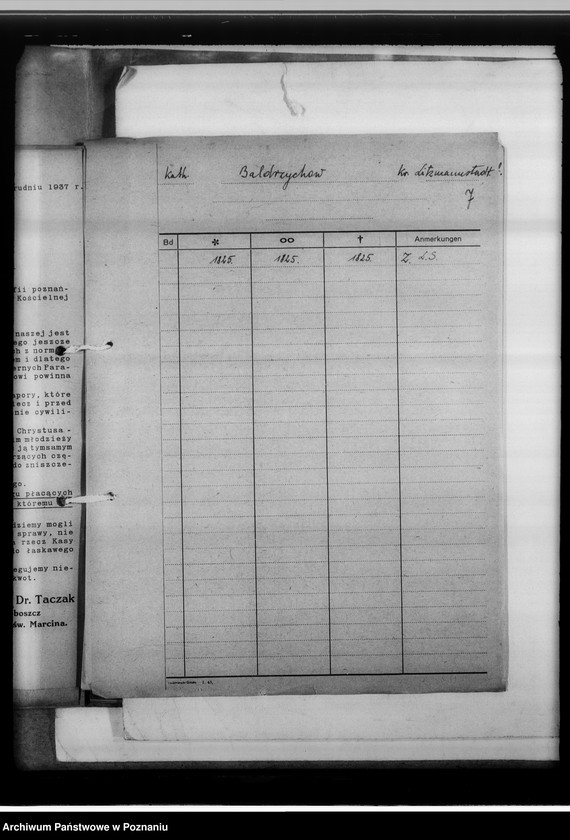 rudniu 1937 r.
fii poznań-
Kościelnej
naszej jest
ego jeszcze
ch z norm
em i dlatego
ernych Para-
owi powinna
apory, które
lecz i przed
nie cywili-
Chrystusa -
m młodzieży
ją tymsamym
rzących czę-
do zniszcze-
go.
ru płacących
któremu
dziemy mogli
sprawy, nie
a rzecz Kasy
o łaskawego
egujemy nie-
kwot.
Dr. Taczak
boszcz
św. Marcina.
Kath. Baldrzychow Kr. Litzmannstadt!
7
Bd * oo † Anmerkungen
1825. 1825. 1825. Z. L.S.
Archiwum Państwowe w Poznaniu